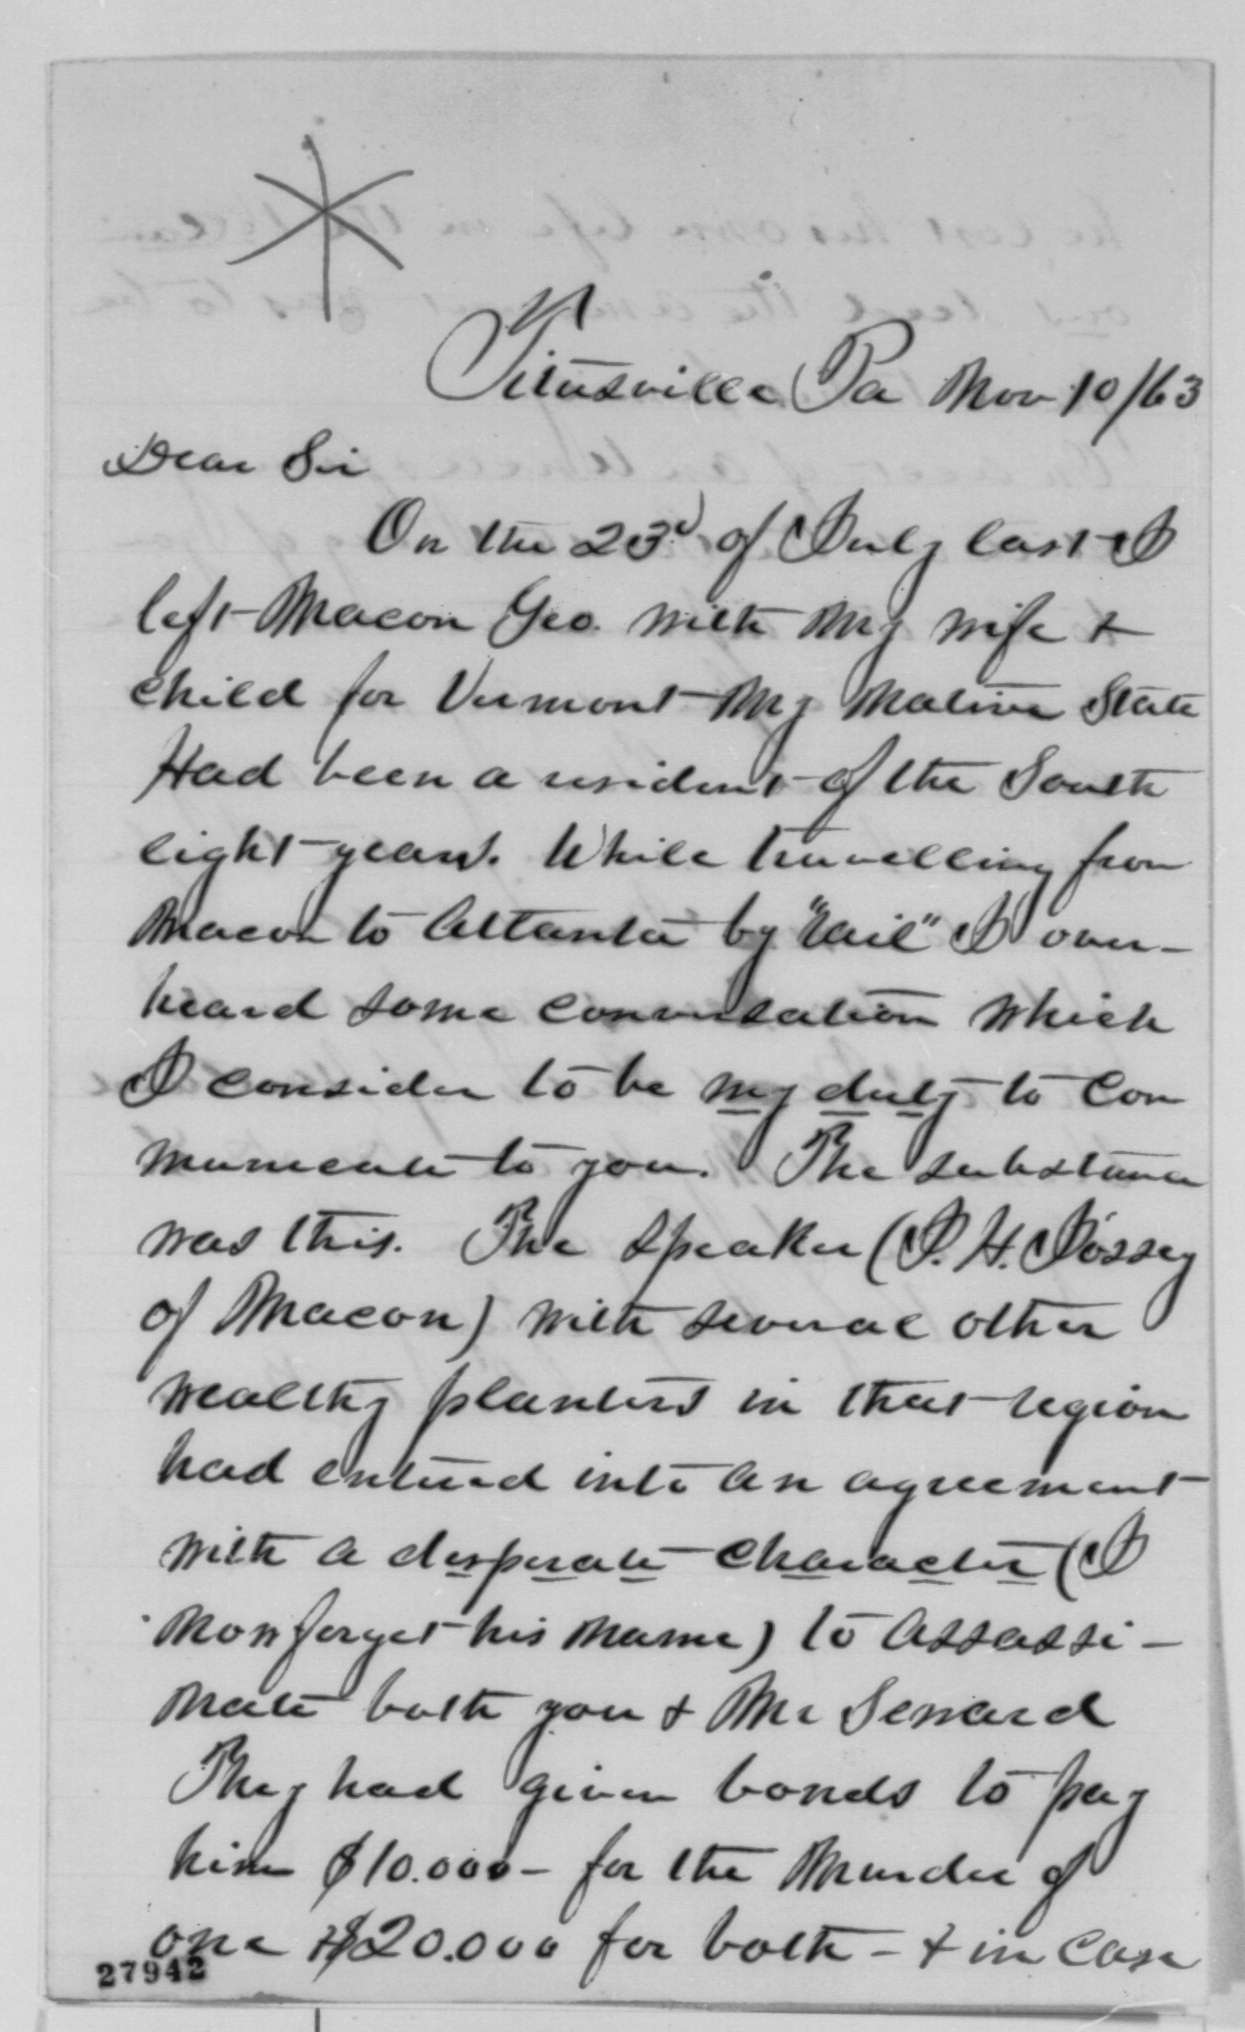 Titusville Pa Nov 10/63
Dear Sir
On the 23d of July last I
left Macon Geo. with my wife &
child for Vermont my native State
Had been a resident of the South
eight years. While travelling from
Macon to Attanta by "rail" I over-
heard some conversation which
I consider to be my duty to com
municate to you. The substance
was this. The speaker (I. H. Jossey
of Macon) with several other
wealthy planters in that region
had entered into an agreement
with a desperate character (I
now forget his name) to assassi-
nate both you & Mr Seward
They had given bonds to pay
him $10.000- for the murder of
one & $20.000 for both - & in case
27942